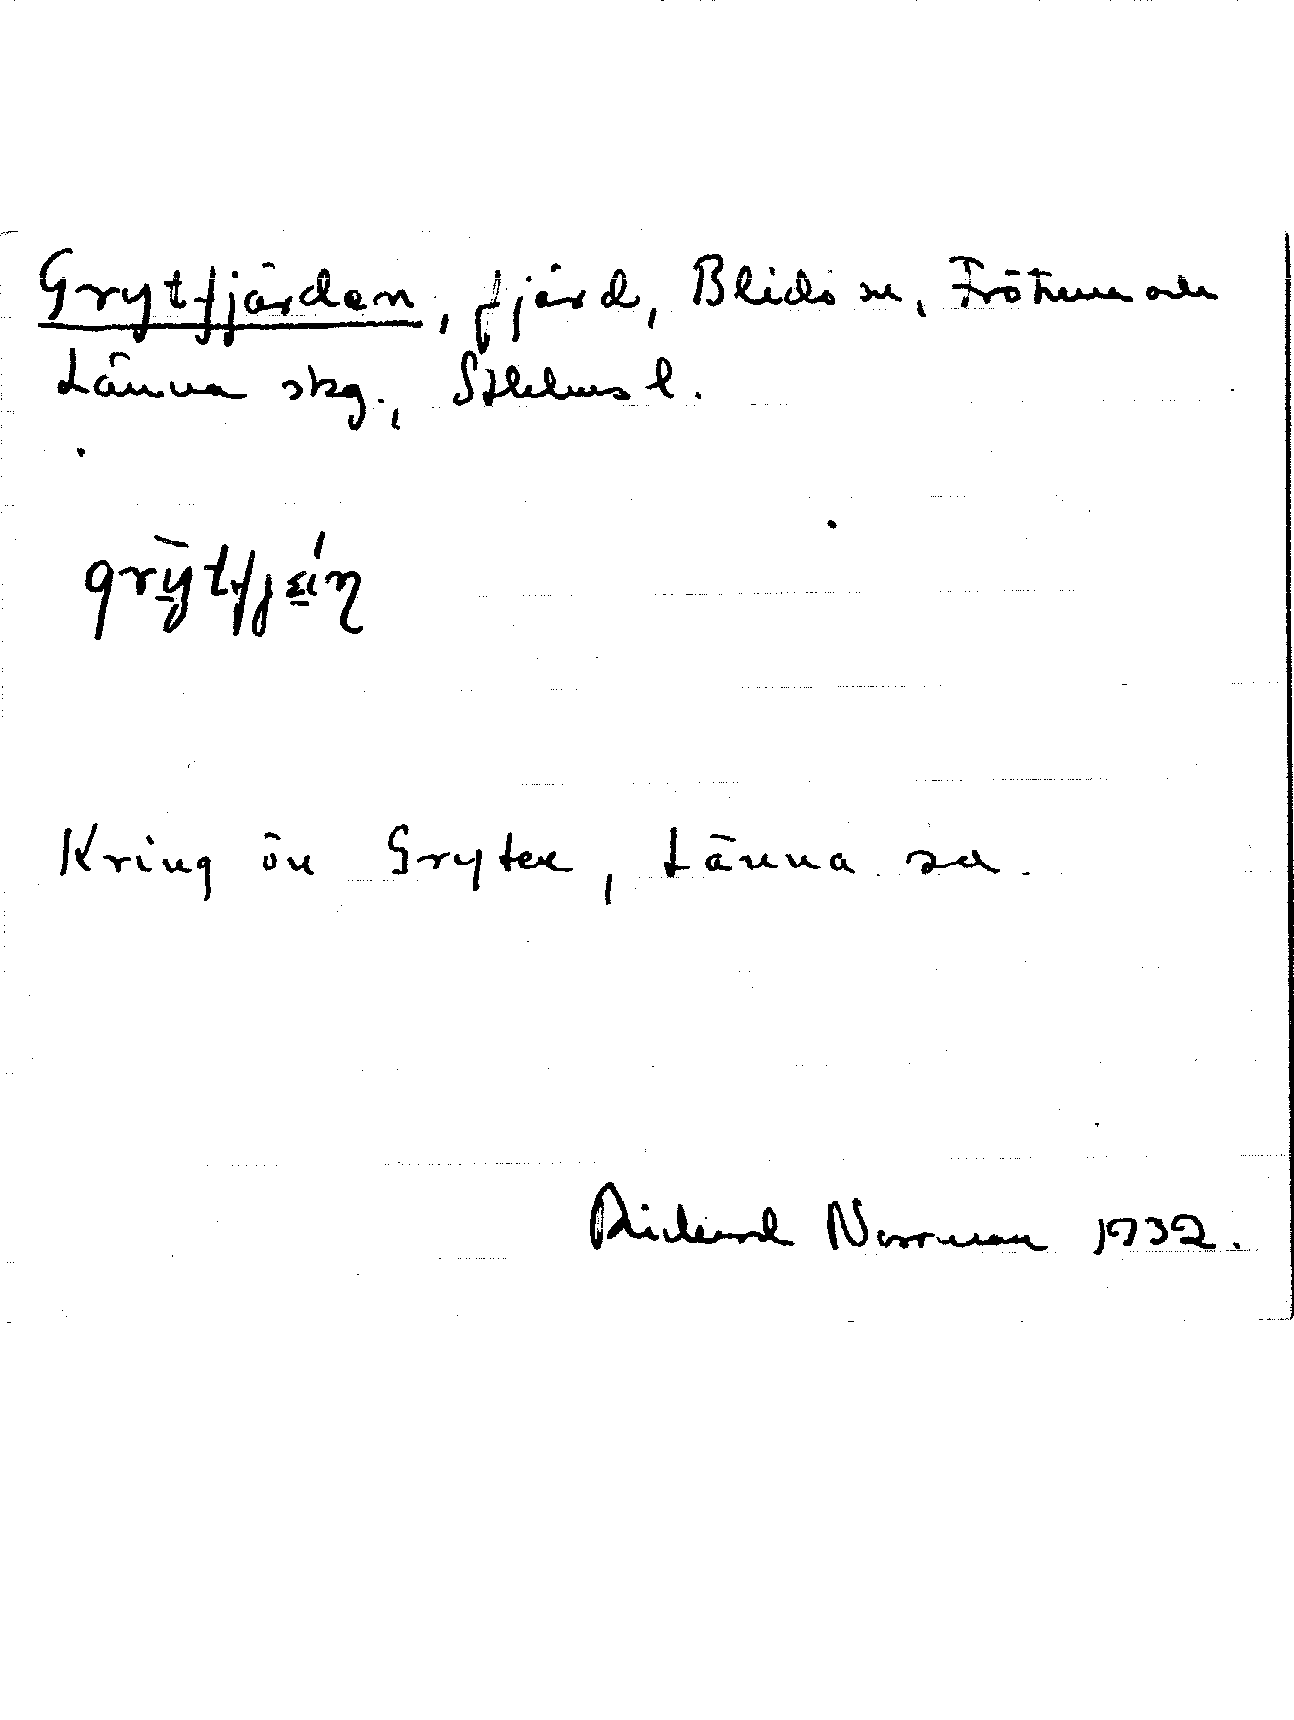 Grytfjärden, fjärd, Blidö sn, Frötuna och
Länna skg., Sthlms l.
Kring ön Gryten, Länna sn.
Rickard Norrman 1932.